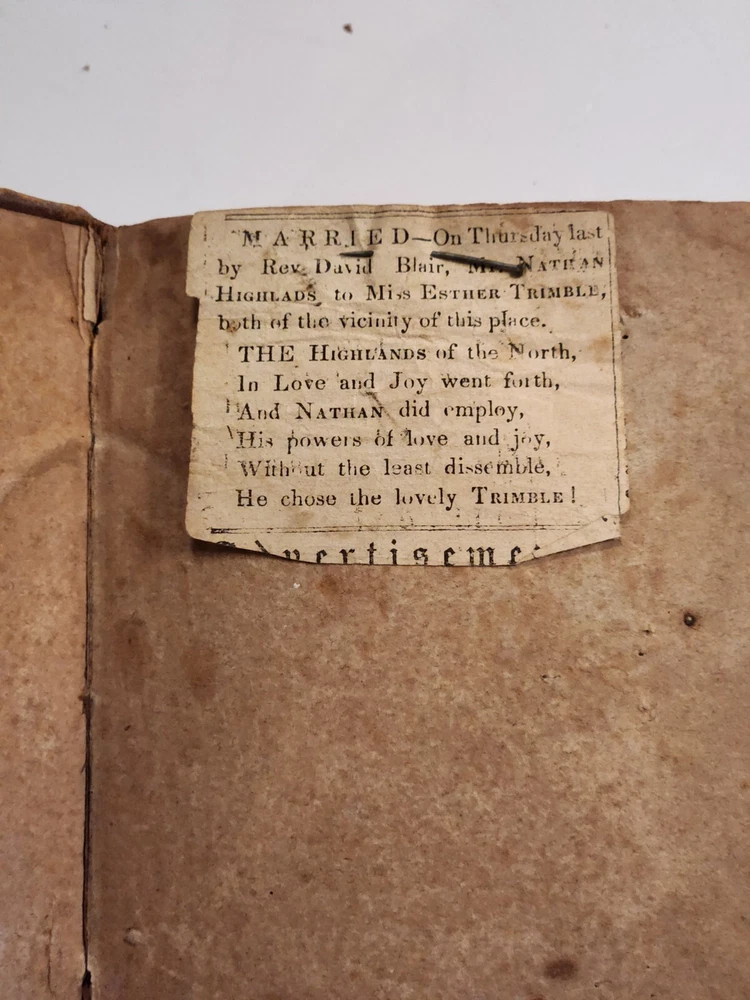 MARRIED—On Thursday last
by Rev. David Blair, Mr. NATHAN
HIGHLADS, to Miss ESTHER TRIMBLE,
both of the vicinity of this place.
THE HIGHLANDS of the North,
In Love and Joy went forth,
And NATHAN did employ,
His powers of love and joy,
Without the least dissemble,
He chose the lovely TRIMBLE!